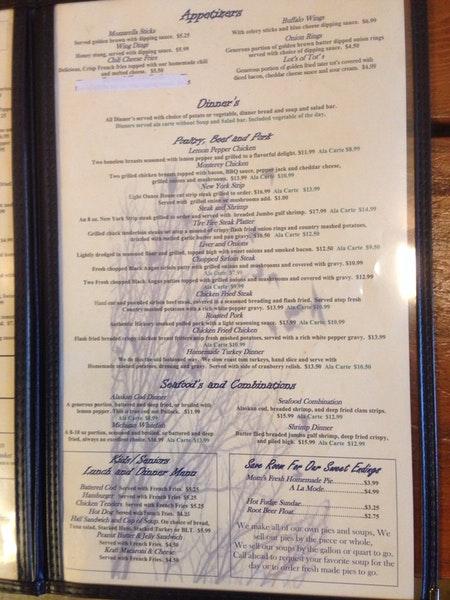 Appetizers
Mozzarella Sticks
Served golden brown with dipping sauce. $5.25
Wing Dings
Honey stung, served with dipping sauce. $5.99
Chili Cheese Fries
Delicious, Crisp French fries topped with our homemade chili
and melted cheese. $5.50
Buffalo Wings
With celery sticks and blue cheese dipping sauce. $6.99
Onion Rings
Generous portion of golden brown butter dipped onion rings
served with dipping sauce. $4.50
Lot's of Tot's
Generous portion of golden fried tater tot's covered with
diced bacon, cheddar cheese sauce and sour cream. $4.99
Dinner's
All Dinner's served with choice of potato or vegetable, dinner bread and soup and salad bar.
Dinners served ala carte without Soup and Salad bar. Included vegetable of the day.
Poultry, Beef and Pork
Lemon Pepper Chicken
Two boneless breasts seasoned with lemon pepper and grilled to a flavorful delight. $11.99 Ala Carte $8.99
Monterey Chicken
Two grilled chicken breasts topped with bacon, BBQ sauce, pepper jack and cheddar cheese,
grilled onions and mushrooms. $13.99 Ala Carte $10.99
New York Strip
Light Ounce House cut strip steak grilled to order. $16.99 Ala Carte $13.99
Served with grilled onion or mushrooms add. $1.00
Steak and Shrimp
An 8 oz. New York Strip steak grilled to order and served with breaded Jumbo gulf shrimp. $17.99 Ala Carte $14.99
Tire Fire Steak Platter
Grilled chuck tenderloin steaks on top a mound of crispy flash fried onion rings and country mashed potatoes,
drizzled with melted garlic butter and pan gravy. $16.50 Ala Carte $12.50
Liver and Onions
Lightly dredged in seasoned flour and grilled, topped high with sweet onions and smoked bacon. $12.50 Ala Carte $9.50
Chopped Sirloin Steak
Fresh chopped Black Angus sirloin patty with grilled onions and mushrooms and covered with gravy. $10.99
Ala Carte $7.99
Two Fresh chopped Black Angus patties topped with grilled onions and mushrooms and covered with gravy. $12.99
Ala Carte $9.99
Chicken Fried Steak
Hand cut and pounded sirloin beef steak, covered in a seasoned breading and flash fried. Served atop fresh
Country mashed potatoes with a rich white pepper gravy. $13.99 Ala Carte $10.99
Roasted Pork
Authentic Hickory smoked pulled pork with a light seasoning sauce. $13.99 Ala Carte $10.99
Chicken Fried Chicken
Flash fried breaded crispy chicken breast fritters atop fresh mashed potatoes, served with a rich white pepper gravy. $13.99
Ala Carte $10.99
Homemade Turkey Dinner
We do this the old fashioned way. We slow roast tom turkeys, hand slice and serve with
Homemade mashed potatoes, dressing and gravy. Served with side of cranberry relish. $13.50 Ala Carte $10.50
Seafood's and Combinations
Alaskan Cod Dinner
A generous portion, battered and deep fried, or broiled with
lemon pepper. This is true cod not Pollock. $11.99
Ala Carte $8.99
Michigan Whitefish
A 8-10 oz portion, seasoned and broiled, or battered and deep
fried, always an excellent choice. $16.99 Ala Carte $13.99
Seafood Combination
Alaskan cod, breaded shrimp, and deep fried clam strips.
$15.99 Ala Carte $12.99
Shrimp Dinner
Butter flied breaded jumbo gulf shrimp, deep fried crispy,
and piled high. $15.99 Ala Carte $12.99
Kids/Seniors
Lunch and Dinner Menu
Battered Cod Served with French Fries. $5.25
Hamburger Served with French Fries. $5.25
Chicken Tenders Served with French Fries. $5.25
Hot Dog Served with French Fries. $4.50
Half Sandwich and Cup of Soup. On choice of bread,
Tuna salad, Stacked Ham, Stacked Turkey or BLT. $5.99
Peanut Butter & Jelly Sandwich
Served with French Fries. $4.50
Kraft Macaroni & Cheese
Served with French Fries. $4.50
Save Room For Our Sweet Endings
Mom's Fresh Homemade Pie...$3.99
A La Mode...$4.99
Hot Fudge Sundae...$3.25
Root Beer Float...$2.75
We make all of our own pies and soups, We
sell our pies by the piece or whole,
We sell our soups by the gallon or quart to go.
Call ahead to request your favorite soup for the
day or to order fresh made pies to go.